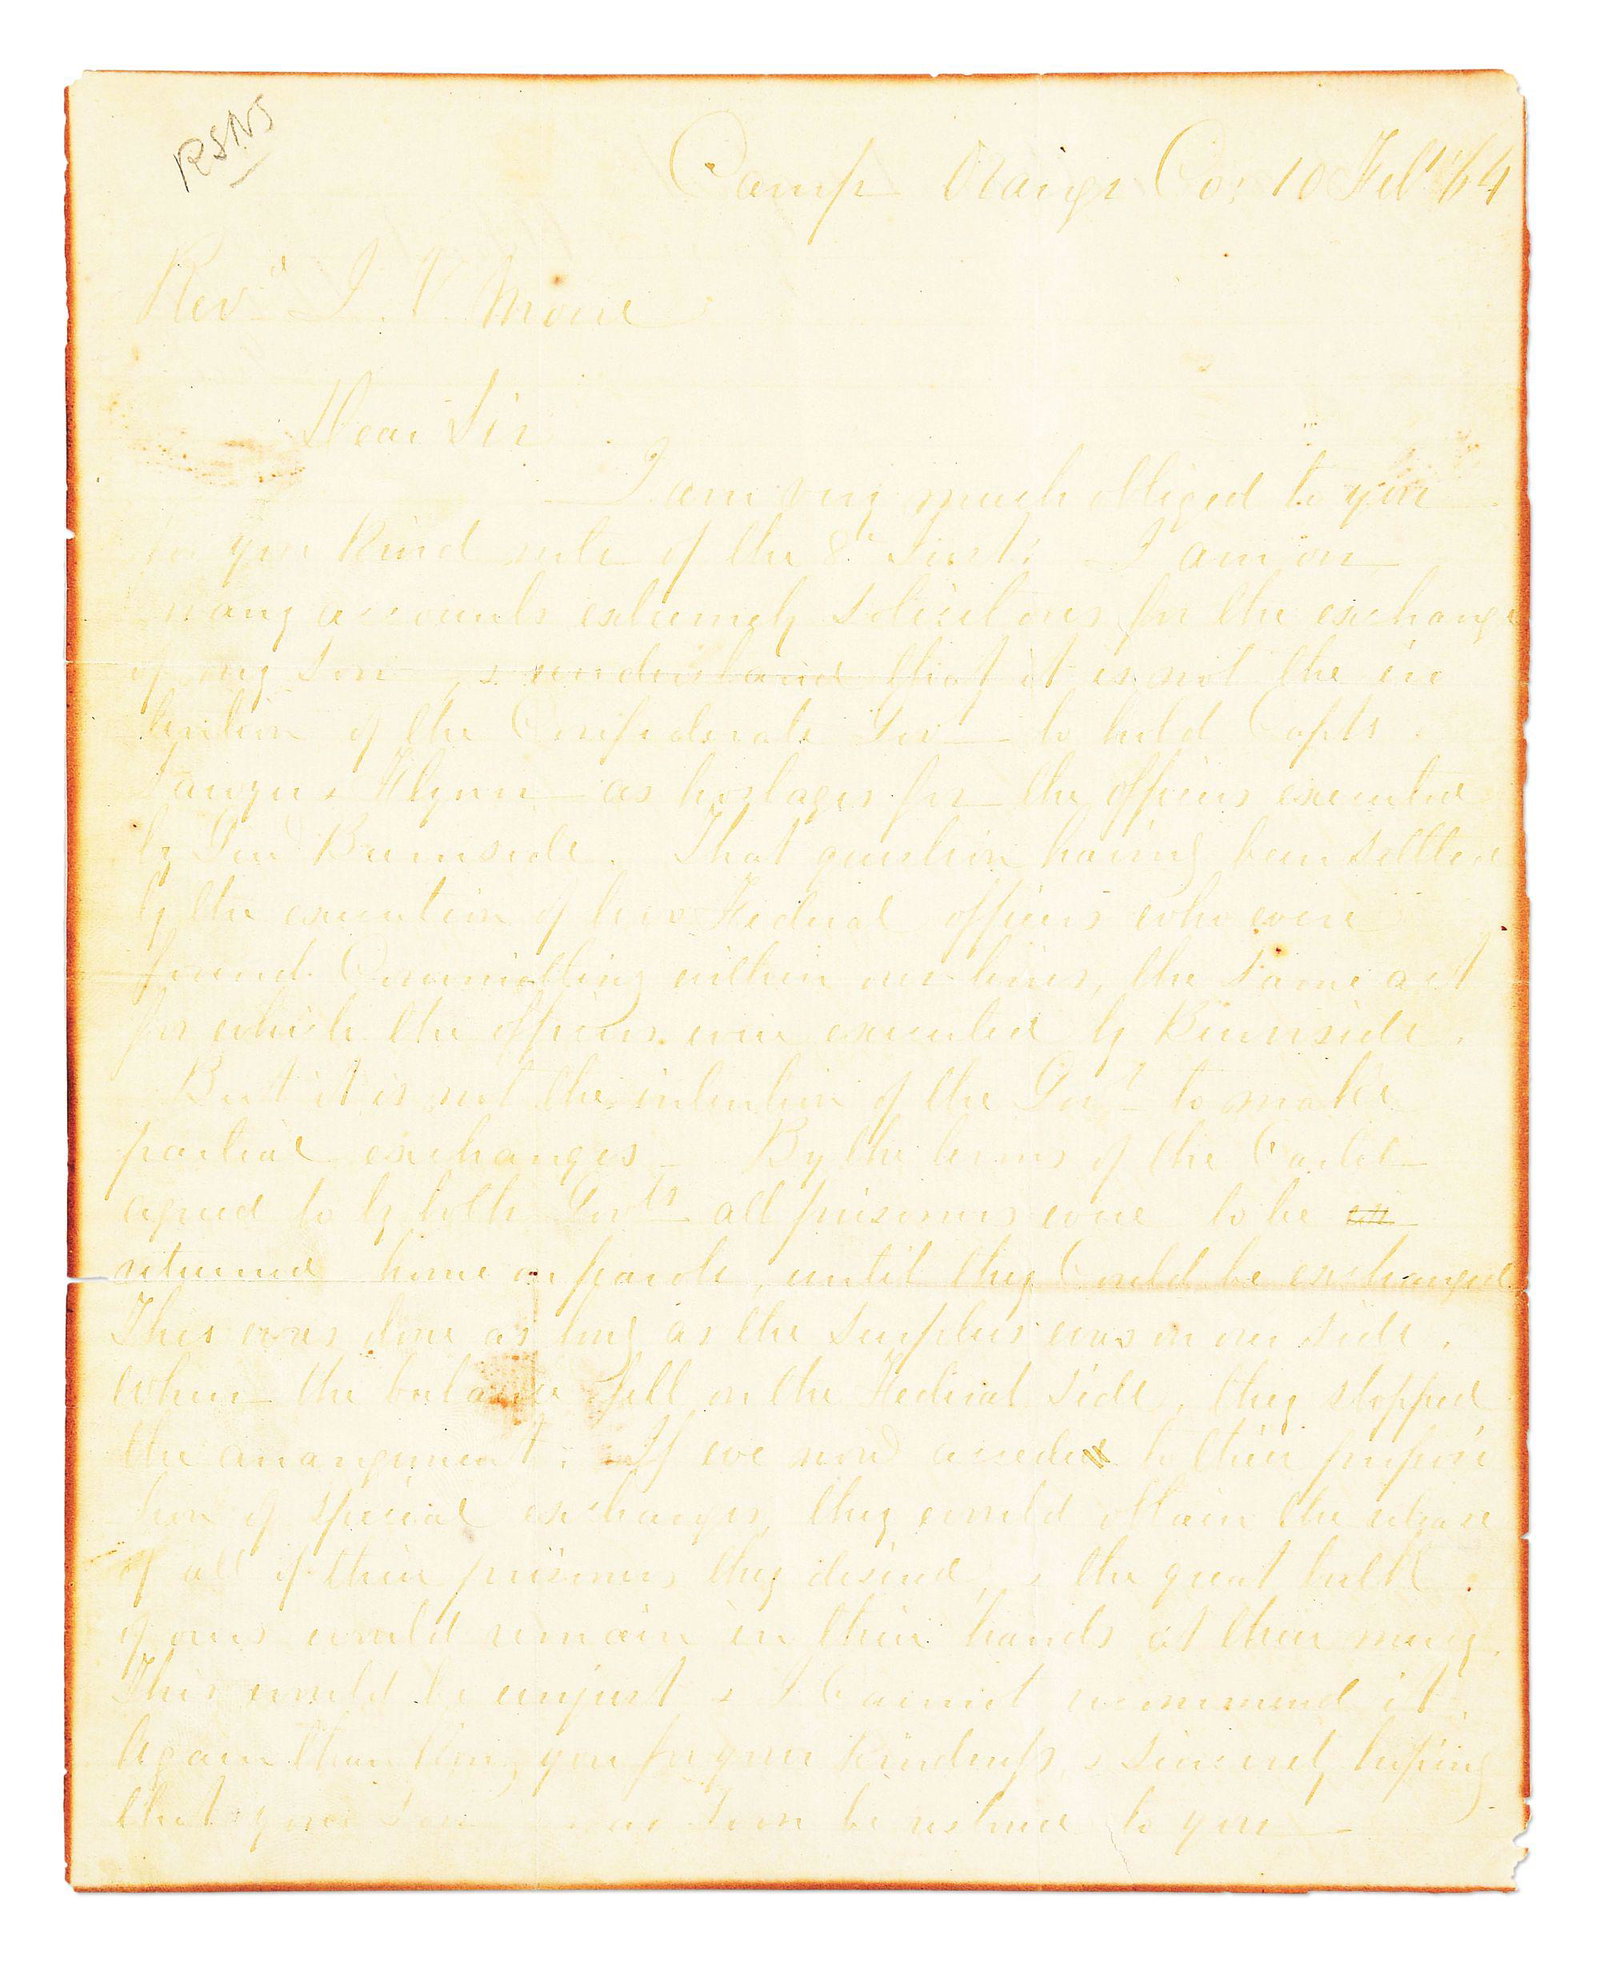 RSNJ
Camp Orange Co: 10 Feb '64
Revd T. V. Moore
Dear Sir
I am very much obliged to you
for your kind note of the 8th Inst: I am on
many accounts extremely solicitous for the exchange
of my son & understand that it is not the in
tention of the Confederate Gov to hold Capts
Sawyer & Flynn as hostages for the officers executed
by Genl Burnside. That question having been settled
by the execution of two Federal officers who were
found Committing within our lines, the same act
for which the officers were executed by Burnside.
But it is not the intention of the Govt to make
partial exchanges – By the terms of the Cartel
agreed to by both Govts all prisoners were to be
returned home on parole, until they Could be exchanged
This was done as long as the surplus was on our side.
When the balance fell on the Federal side, they stopped
the arrangement. If we now accede to their proposi
tion of special exchanges, they would obtain the release
of all of their prisoners they desired, & the great bulk
of ours would remain in their hands at their mercy.
This would be unjust & I Cannot recommend it.
Again thanking you for your kindness, & sincerely hoping
that your son may soon be restored to you